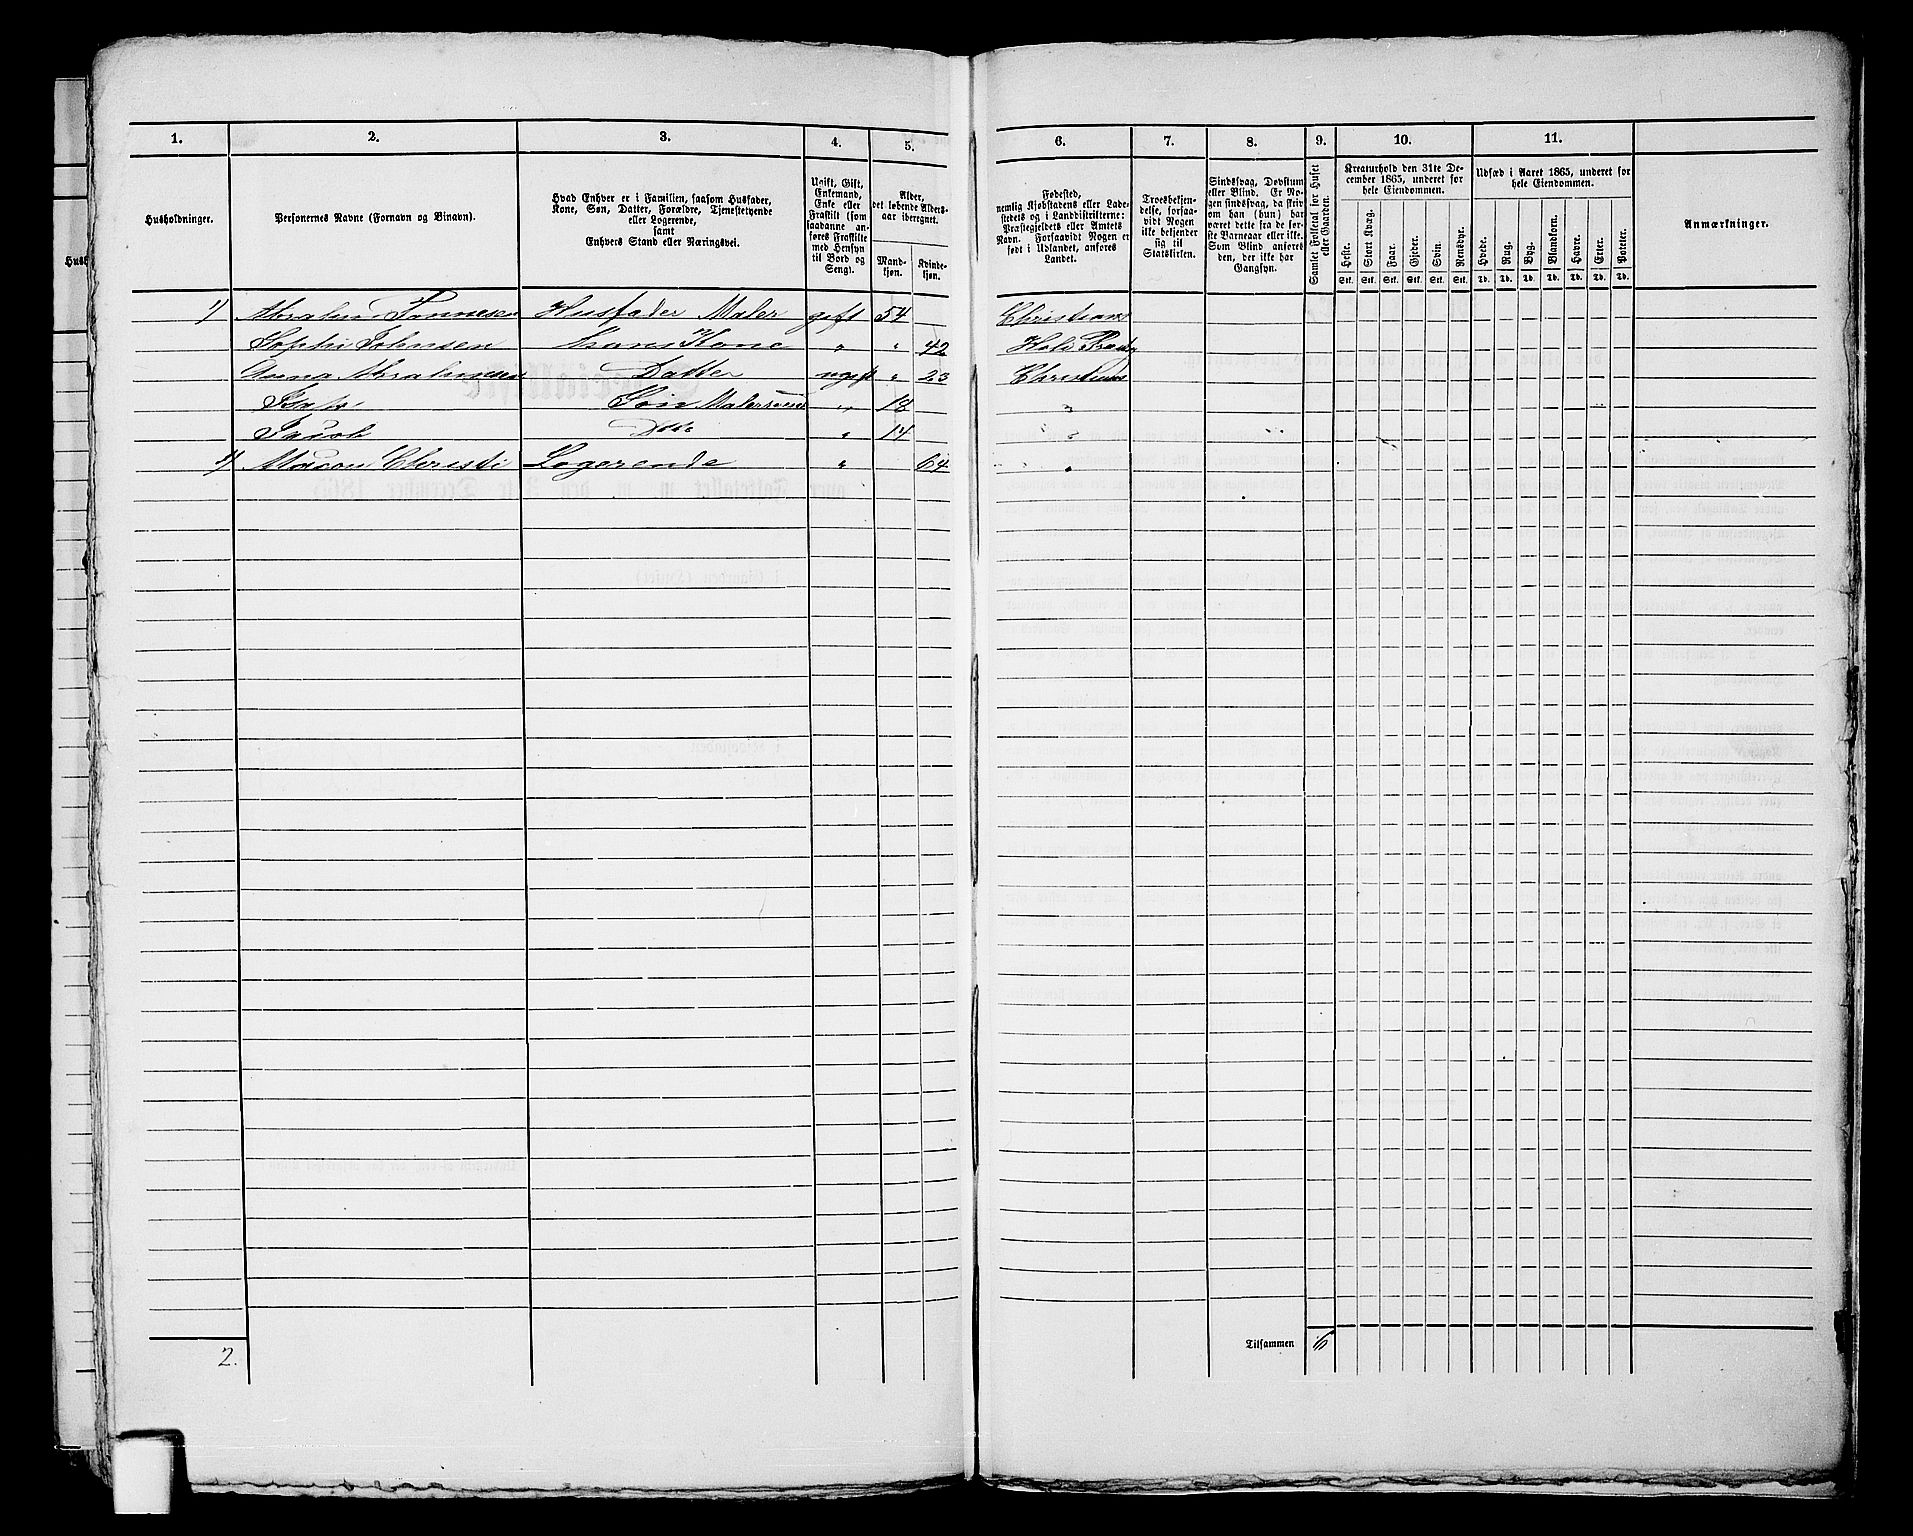 1. 2. 3. 4. 5. 6. 7. 8. 9. 10. 11.
Husholdninger.
Personernes Navne (Fornavn og Binavn).
Hvad Enhver er i Familien, saasom Husfader,
Kone, Søn, Datter, Forældre, Tjenestetyende
eller Logerende,
samt
Enhvers Stand eller Næringsvei.
Ugift, Gift,
Enkemand,
Enke eller
Fraskilt (som
saadanne an-
føres Fraskilte
med Hensyn
til Bord og
Seng).
Alder,
det løbende Alders-
aar iberegnet.
Mand-
kjøn.
Kvinde-
kjøn.
Fødested,
nemlig Kjøbstadens eller Lade-
stedets og i Landdistrikterne:
Præstegjeldets eller Amtets
Navn. Forsaavidt Nogen er
født i Udlandet, anføres
Landet.
Troesbekjen-
delse, forsaa-
vidt Nogen
ikke bekjender
sig til
Statskirken.
Sindssvag, Døvstum
eller Blind. Er No-
gen sindssvag, da skriv
om han (hun) har
været dette fra de før-
ste Barneaar eller ikke.
Som Blind anføres
den, der ikke har
Gangsyn.
Samlet Folketal for Huset
eller Gaarden.
Kreaturhold den 31te De-
cember 1865, underet for
hele Eiendommen.
Heste. Stort Kvæg. Faar. Gjeder. Svin. Rensdyr.
Stk. Stk. Stk. Stk. Stk. Stk.
Udsæd i Aaret 1865, underet for
hele Eiendommen.
Hvede. Rug. Byg. Blandkorn. Havre. Erter. Poteter.
Td. Td. Td. Td. Td. Td. Td.
Anmærkninger.
1/ Abraham Tønnesen Husfader Maler gift 54
Sophi Johnsen Hans Kone " " 42
Anna Abrahamsen Datter ugift " 23
Søn Malersvend " 18
Jacob Dtto " 14
Christi Logerende " 64
2.
Tilsammen 6